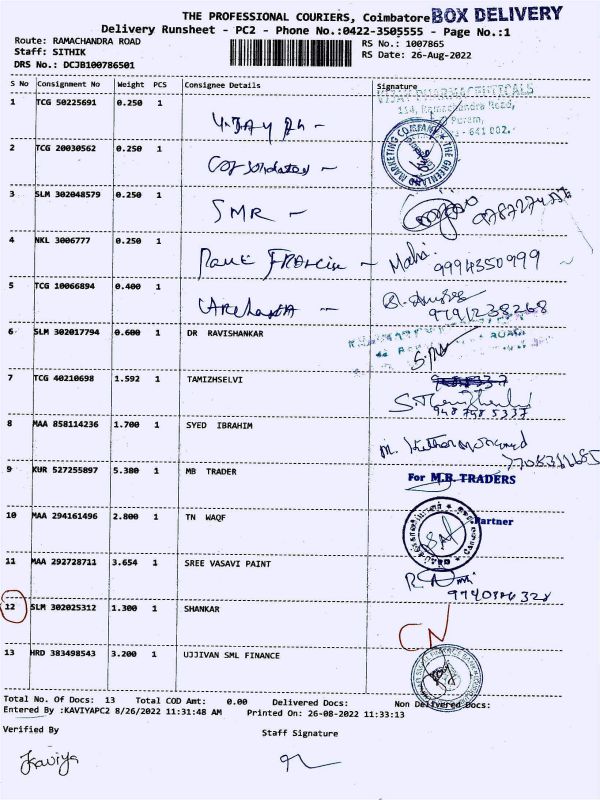 THE PROFESSIONAL COURIERS, Coimbatore BOX DELIVERY
Delivery Runsheet - PC2 - Phone No.:0422-3505555 - Page No.:1
Route: RAMACHANDRA ROAD
RS No.: 1007865
Staff: SITHIK
RS Date: 26-Aug-2022
DRS No.: DCJB100786501
S No Consignment No Weight PCS Consignee Details Signature
1 TCG 50225691 0.250 1
114, Ramachandra Road,
Puram,
- 641 002.
2 TCG 20030562 0.250 1
THE GREENLAND MARKETING COMPANY
3 SLM 302048579 0.250 1 SMR -
4 NKL 3006777 0.250 1 Francis - Mahi
9994350999
5 TCG 10066894 0.400 1
9791238268
6 SLM 302017794 0.600 1 DR RAVISHANKAR
7 TCG 40210698 1.592 1 TAMIZHSELVI
948 798 5337
8 MAA 858114236 1.700 1 SYED IBRAHIM
9 KUR 527255897 5.380 1 MB TRADER
For M.B. TRADERS
Partner
10 MAA 294161496 2.800 1 TN WAQF
11 MAA 292728711 3.654 1 SREE VASAVI PAINT
12 SLM 302025312 1.300 1 SHANKAR
CN
13 HRD 383498543 3.200 1 UJJIVAN SML FINANCE
Total No. Of Docs: 13 Total COD Amt: 0.00 Delivered Docs: Non Delivered Docs:
Entered By :KAVIYAPC2 8/26/2022 11:31:48 AM Printed On: 26-08-2022 11:33:13
Verified By Staff Signature
Kaviya